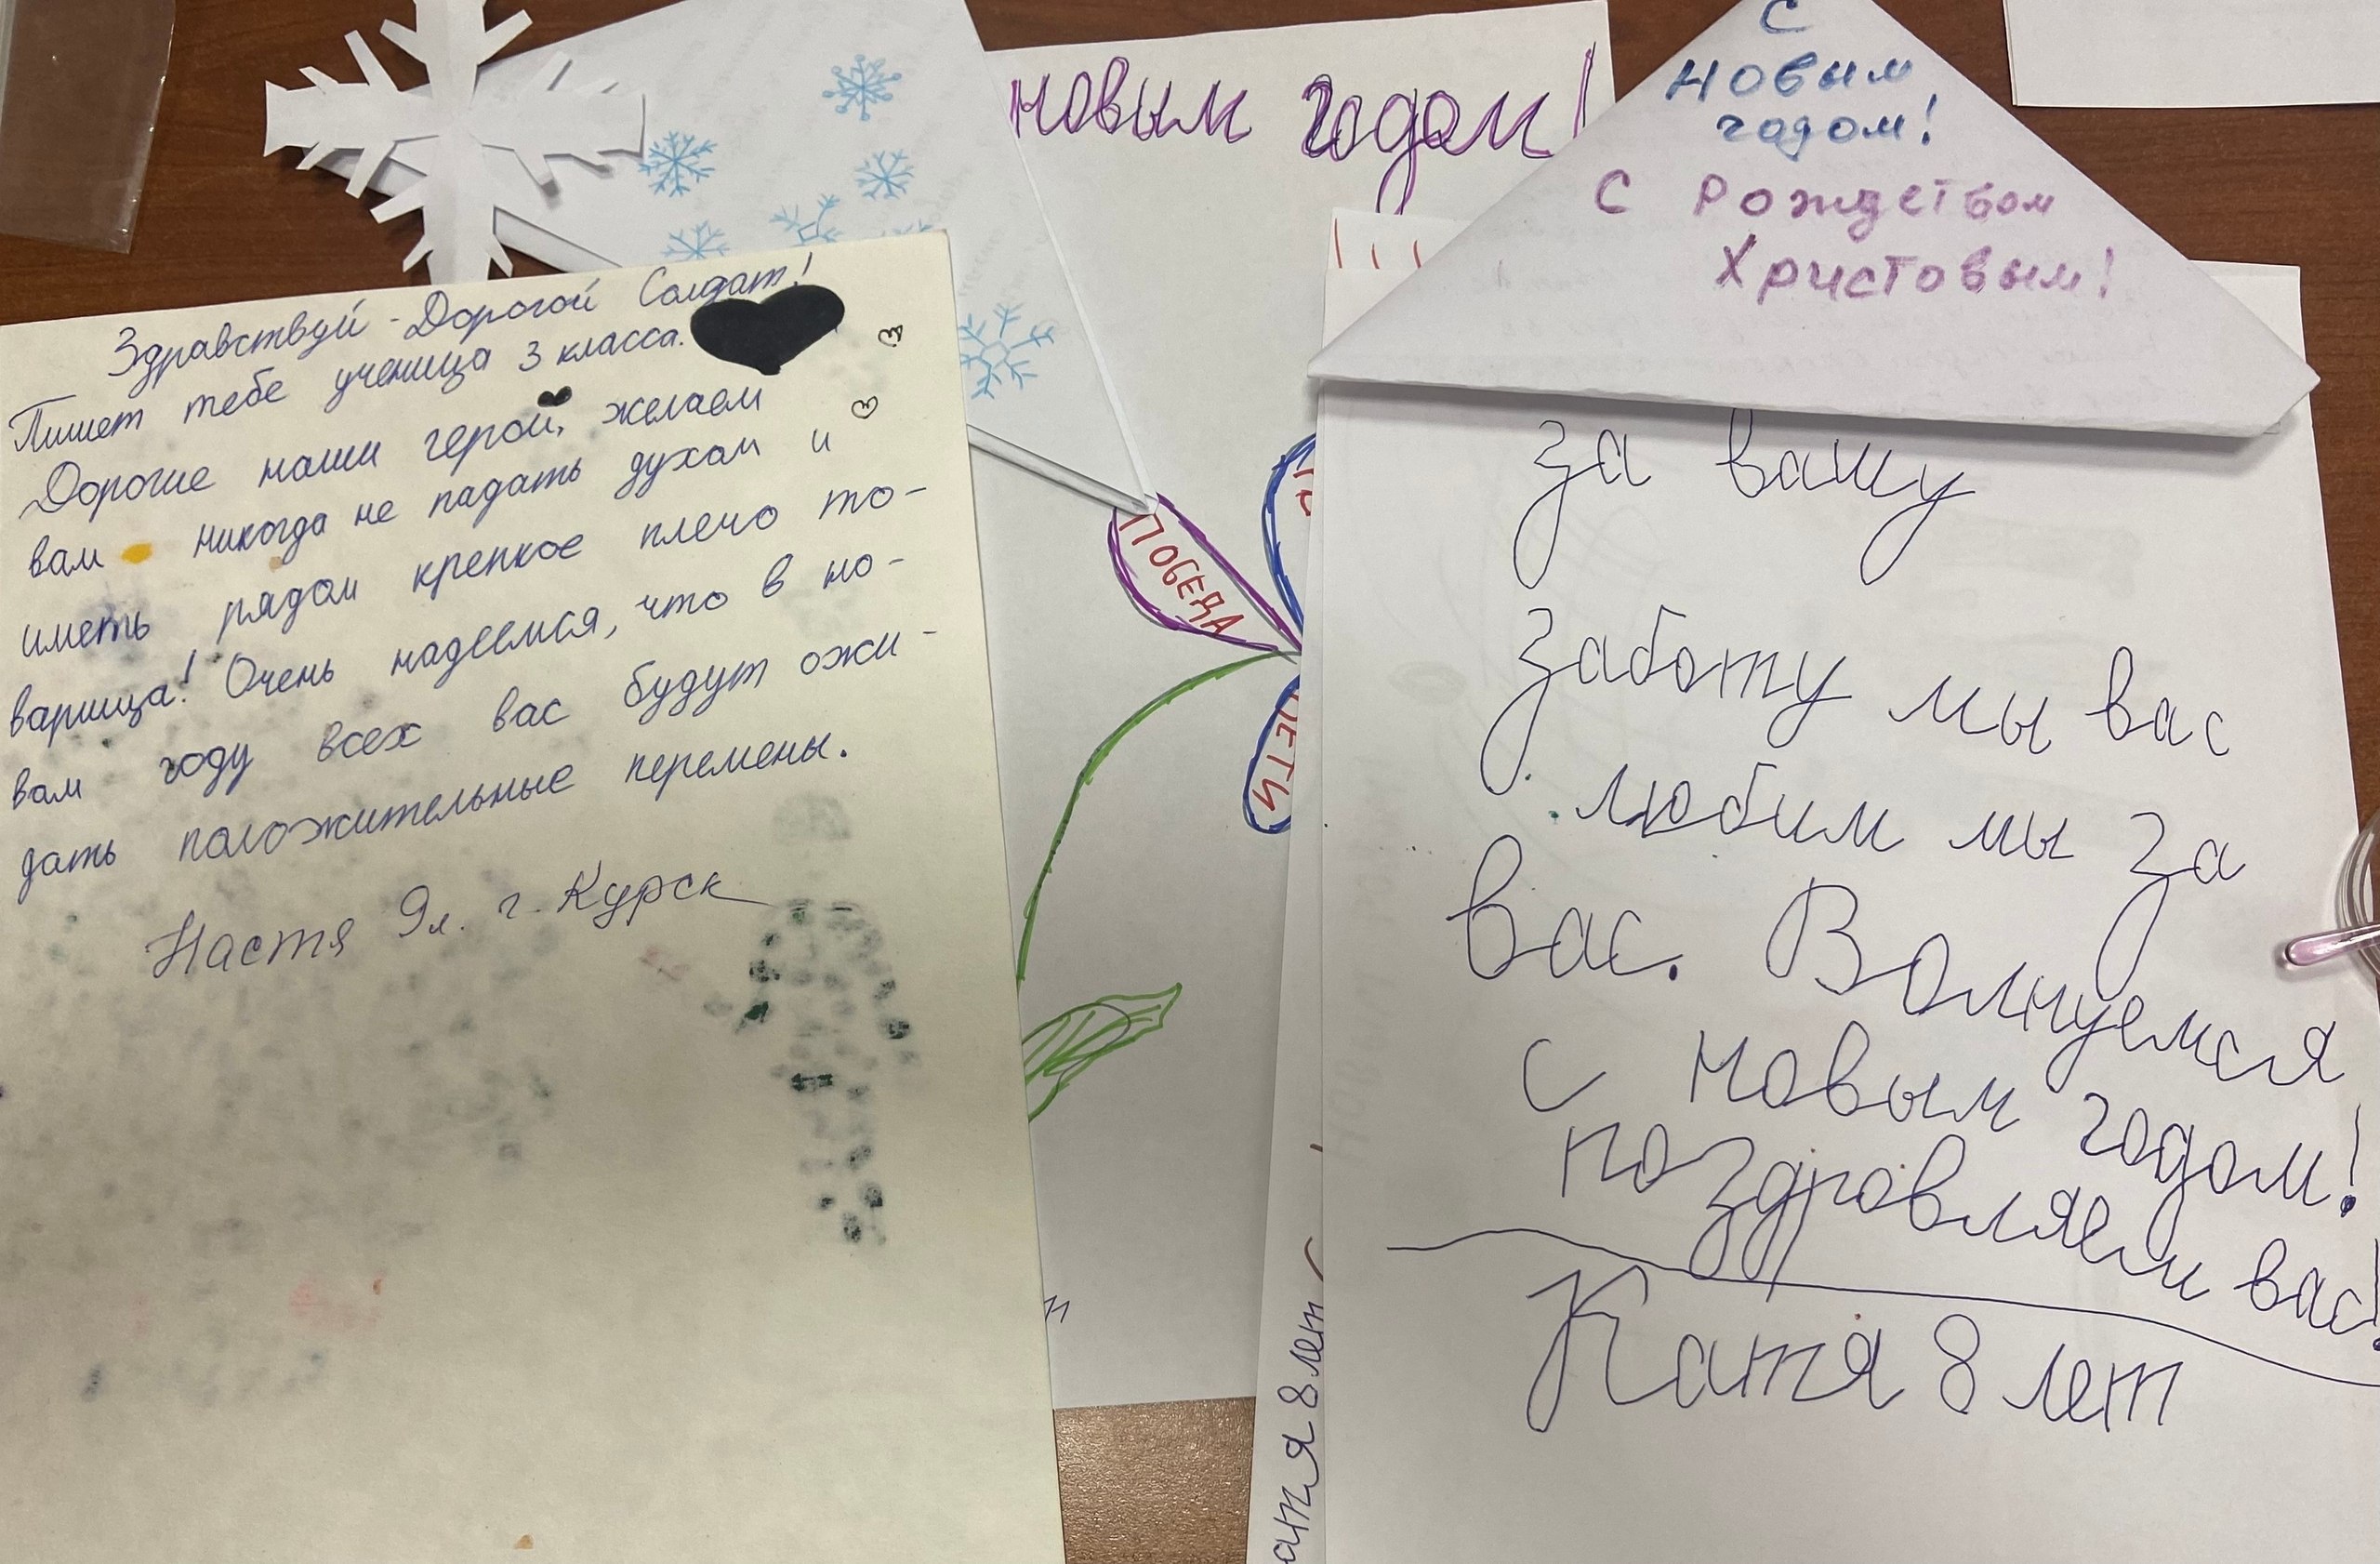 Здравствуй - Дорогой Солдат!
Пишет тебе ученица 3 класса.
Дорогие наши герой, желаем
вам никогда не падать духом и
иметь рядом крепкое плечо то-
варища! Очень надеемся, что в но-
вом году всех вас будут ожи-
дать положительные перемены.
Настя 9л. г. Курск
новым годом!
ПОБЕДА
ДЕТИ
С
новым
годом!
С Рождеством
Христовым!
за вашу
заботу мы вас
любим мы за
вас. Волнуемся
с новым годом!
поздровляем вас!
Катя 8 лет
атя 8 лет